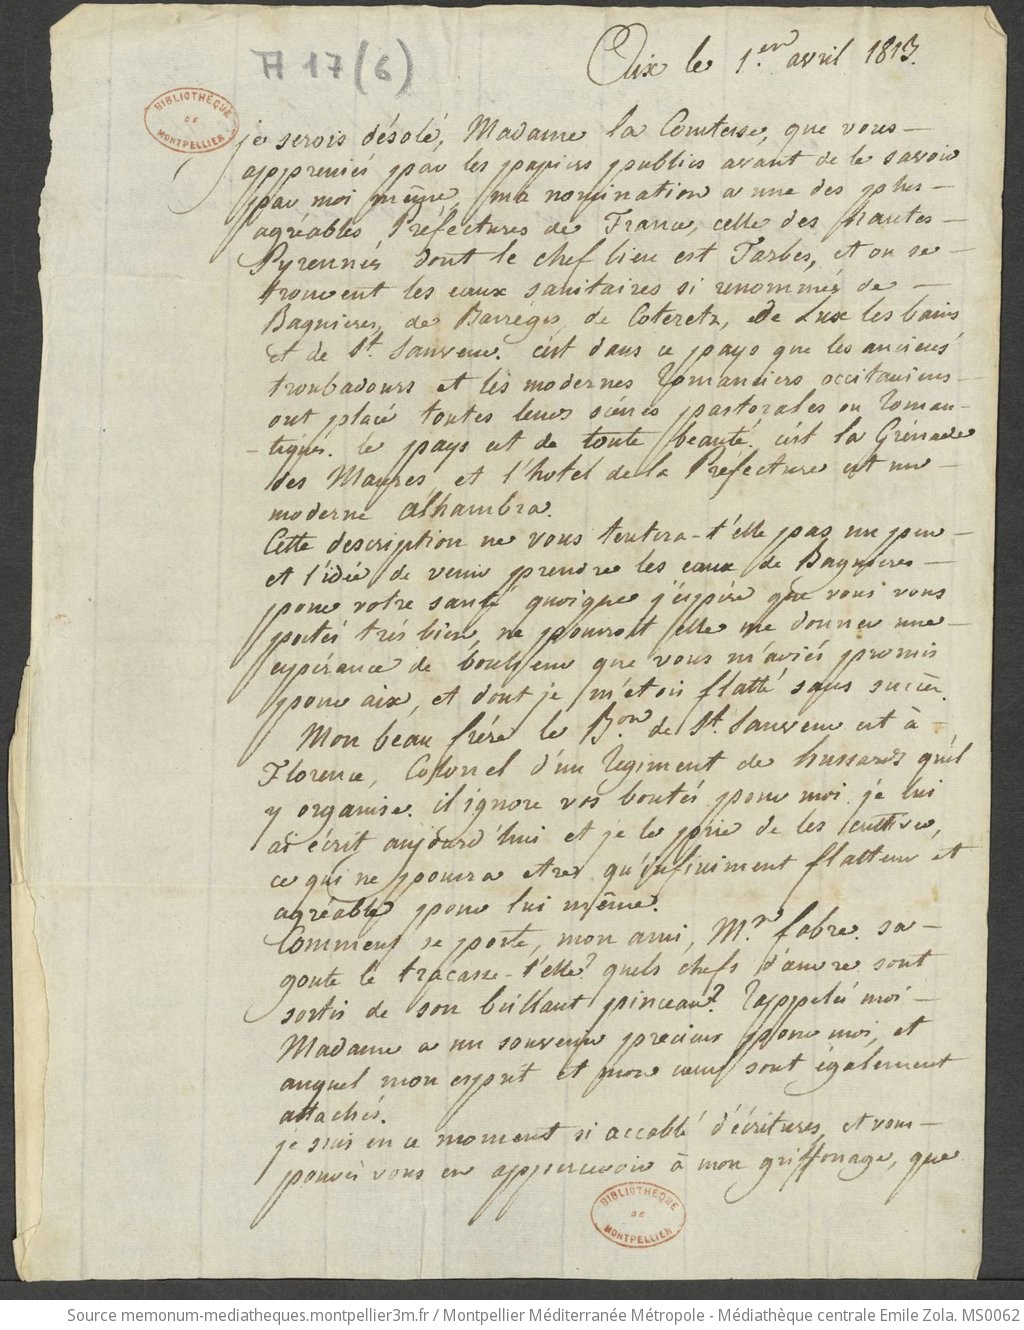 A 17 (6)
Aix le 1.er avril 1813.
BIBLIOTHÈQUE
DE
MONTPELLIER
je serois désolé, Madame la Comtesse, que vous
appreniés par les papiers publics avant de le savoir
par moi même, ma nomination a une des plus
agréables Préfectures de France, celle des hautes
Pyrennées dont le chef lieu est Tarbes, et ou se
trouvent les eaux sanitaires si renommés de
Bagnieres, de Barrèges, de Coteretz, de Lux les bains
et de St. Sauveur. c'est dans ce pays que les anciens
troubadours et les modernes romanciers occitaniens
ont placé toutes leurs scènes pastorales ou roman-
-tiques. le pays est de toute beauté. c'est la Grénade
des Maures, et l'hotel de la Préfecture est un
moderne alhambra.
Cette description ne vous tentera-t'elle pas un peu
et l'idée de venir prendre les eaux de Bagnieres
pour votre santé quoique j'éspére que vous vous
portés très bien, ne pourroit elle me donner une
espérance de bonheur que vous m'aviés promis
pour aix, et dont je m'etois flatté sans succès.
Mon beau frére le B.on de St. Sauveur est à
Florence, Colonel d'un régiment de hussards qu'il
y organise. il ignore vos bontés pour moi. je lui
ai écrit aujourd'hui et je le prie de les cultiver,
ce qui ne pourra etre qu'infiniment flatteur et
agréable pour lui même.
Comment se porte, mon ami, M.r fabre. sa
goute le tracasse-t'elle? quels chefs d'œuvre sont
sortis de son brillant pinceau? rappelés moi
Madame a un souvenir précieux pour moi, et
auquel mon esprit et mon cœur sont également
attachés.
je suis en ce moment si accablé d'écritures, et vous
pouvés vous en appercevoir à mon griffonage, que
BIBLIOTHÈQUE
DE
MONTPELLIER
Source memonum-mediatheques.montpellier3m.fr / Montpellier Méditerranée Métropole - Médiathèque centrale Emile Zola. MS0062